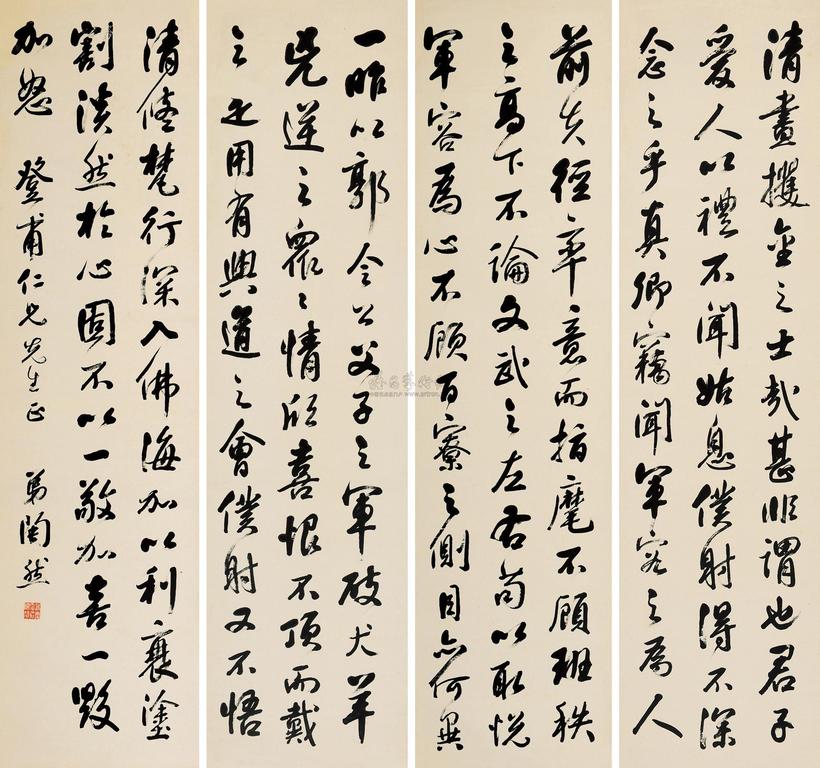 清晝攫金之士哉甚非謂也君子
愛人以禮不聞姑息僕射得不深
念之乎真卿竊聞軍容之為人
前失徑率意而指麾不顧班秩
之高下不論文武之左右苟以取悅
軍容為心不顧百寮之側目亦何異
一昨以郭令公父子之軍破犬羊
兇逆之眾眾情欣喜恨不頂而戴
之是用有興道之會僕射又不悟
清修梵行深入佛海加以利衰塗
割澹然於心固不以一敬加喜一毀
加怒 登甫仁兄先生正 弟陶然